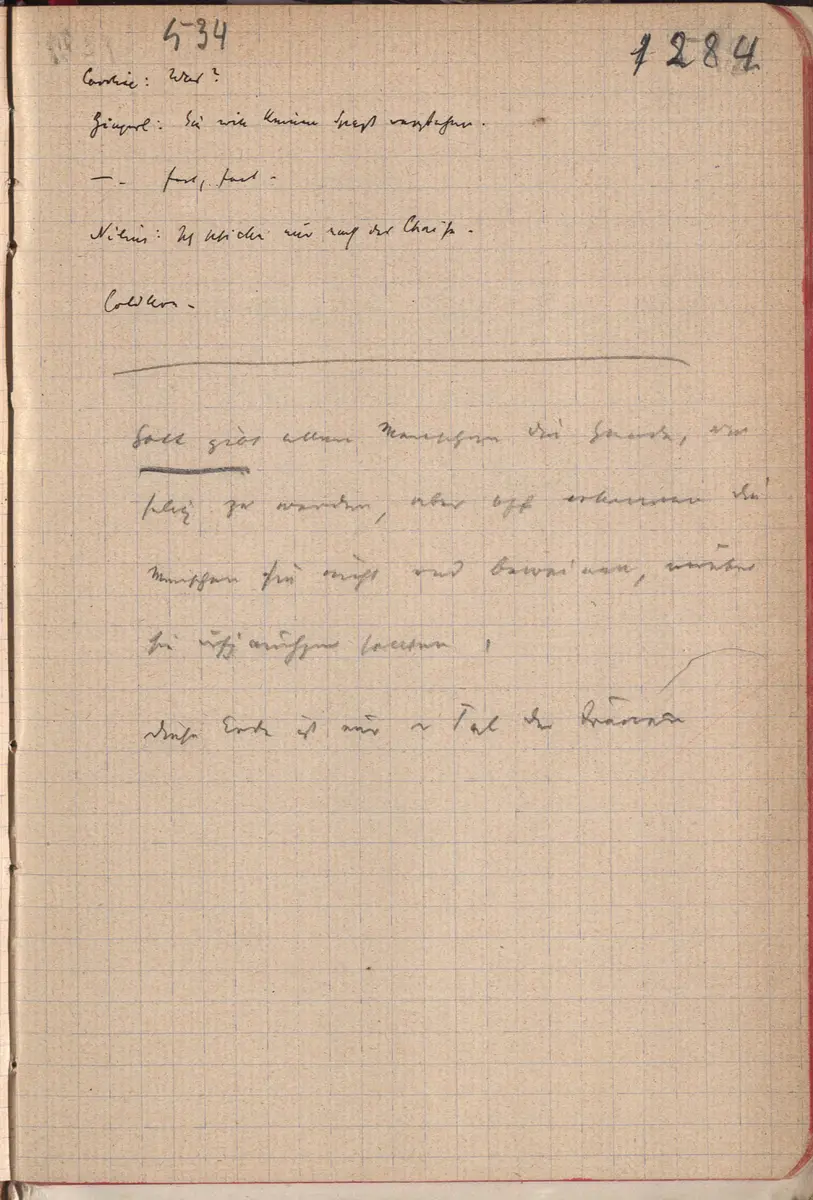 534
1284
Caroline: Was?
Gingerl: Sie will keinen Spaß verstehen.
— . fort, fort –
Nilius: Ich nur auf der Chaise.
Gott gibt allen Menschen die Gnade,
selig zu werden, aber oft erkennen die
Menschen sie nicht und beweinen, worüber
sie sich sollten
diese Erde ist nur Tal der Tränen